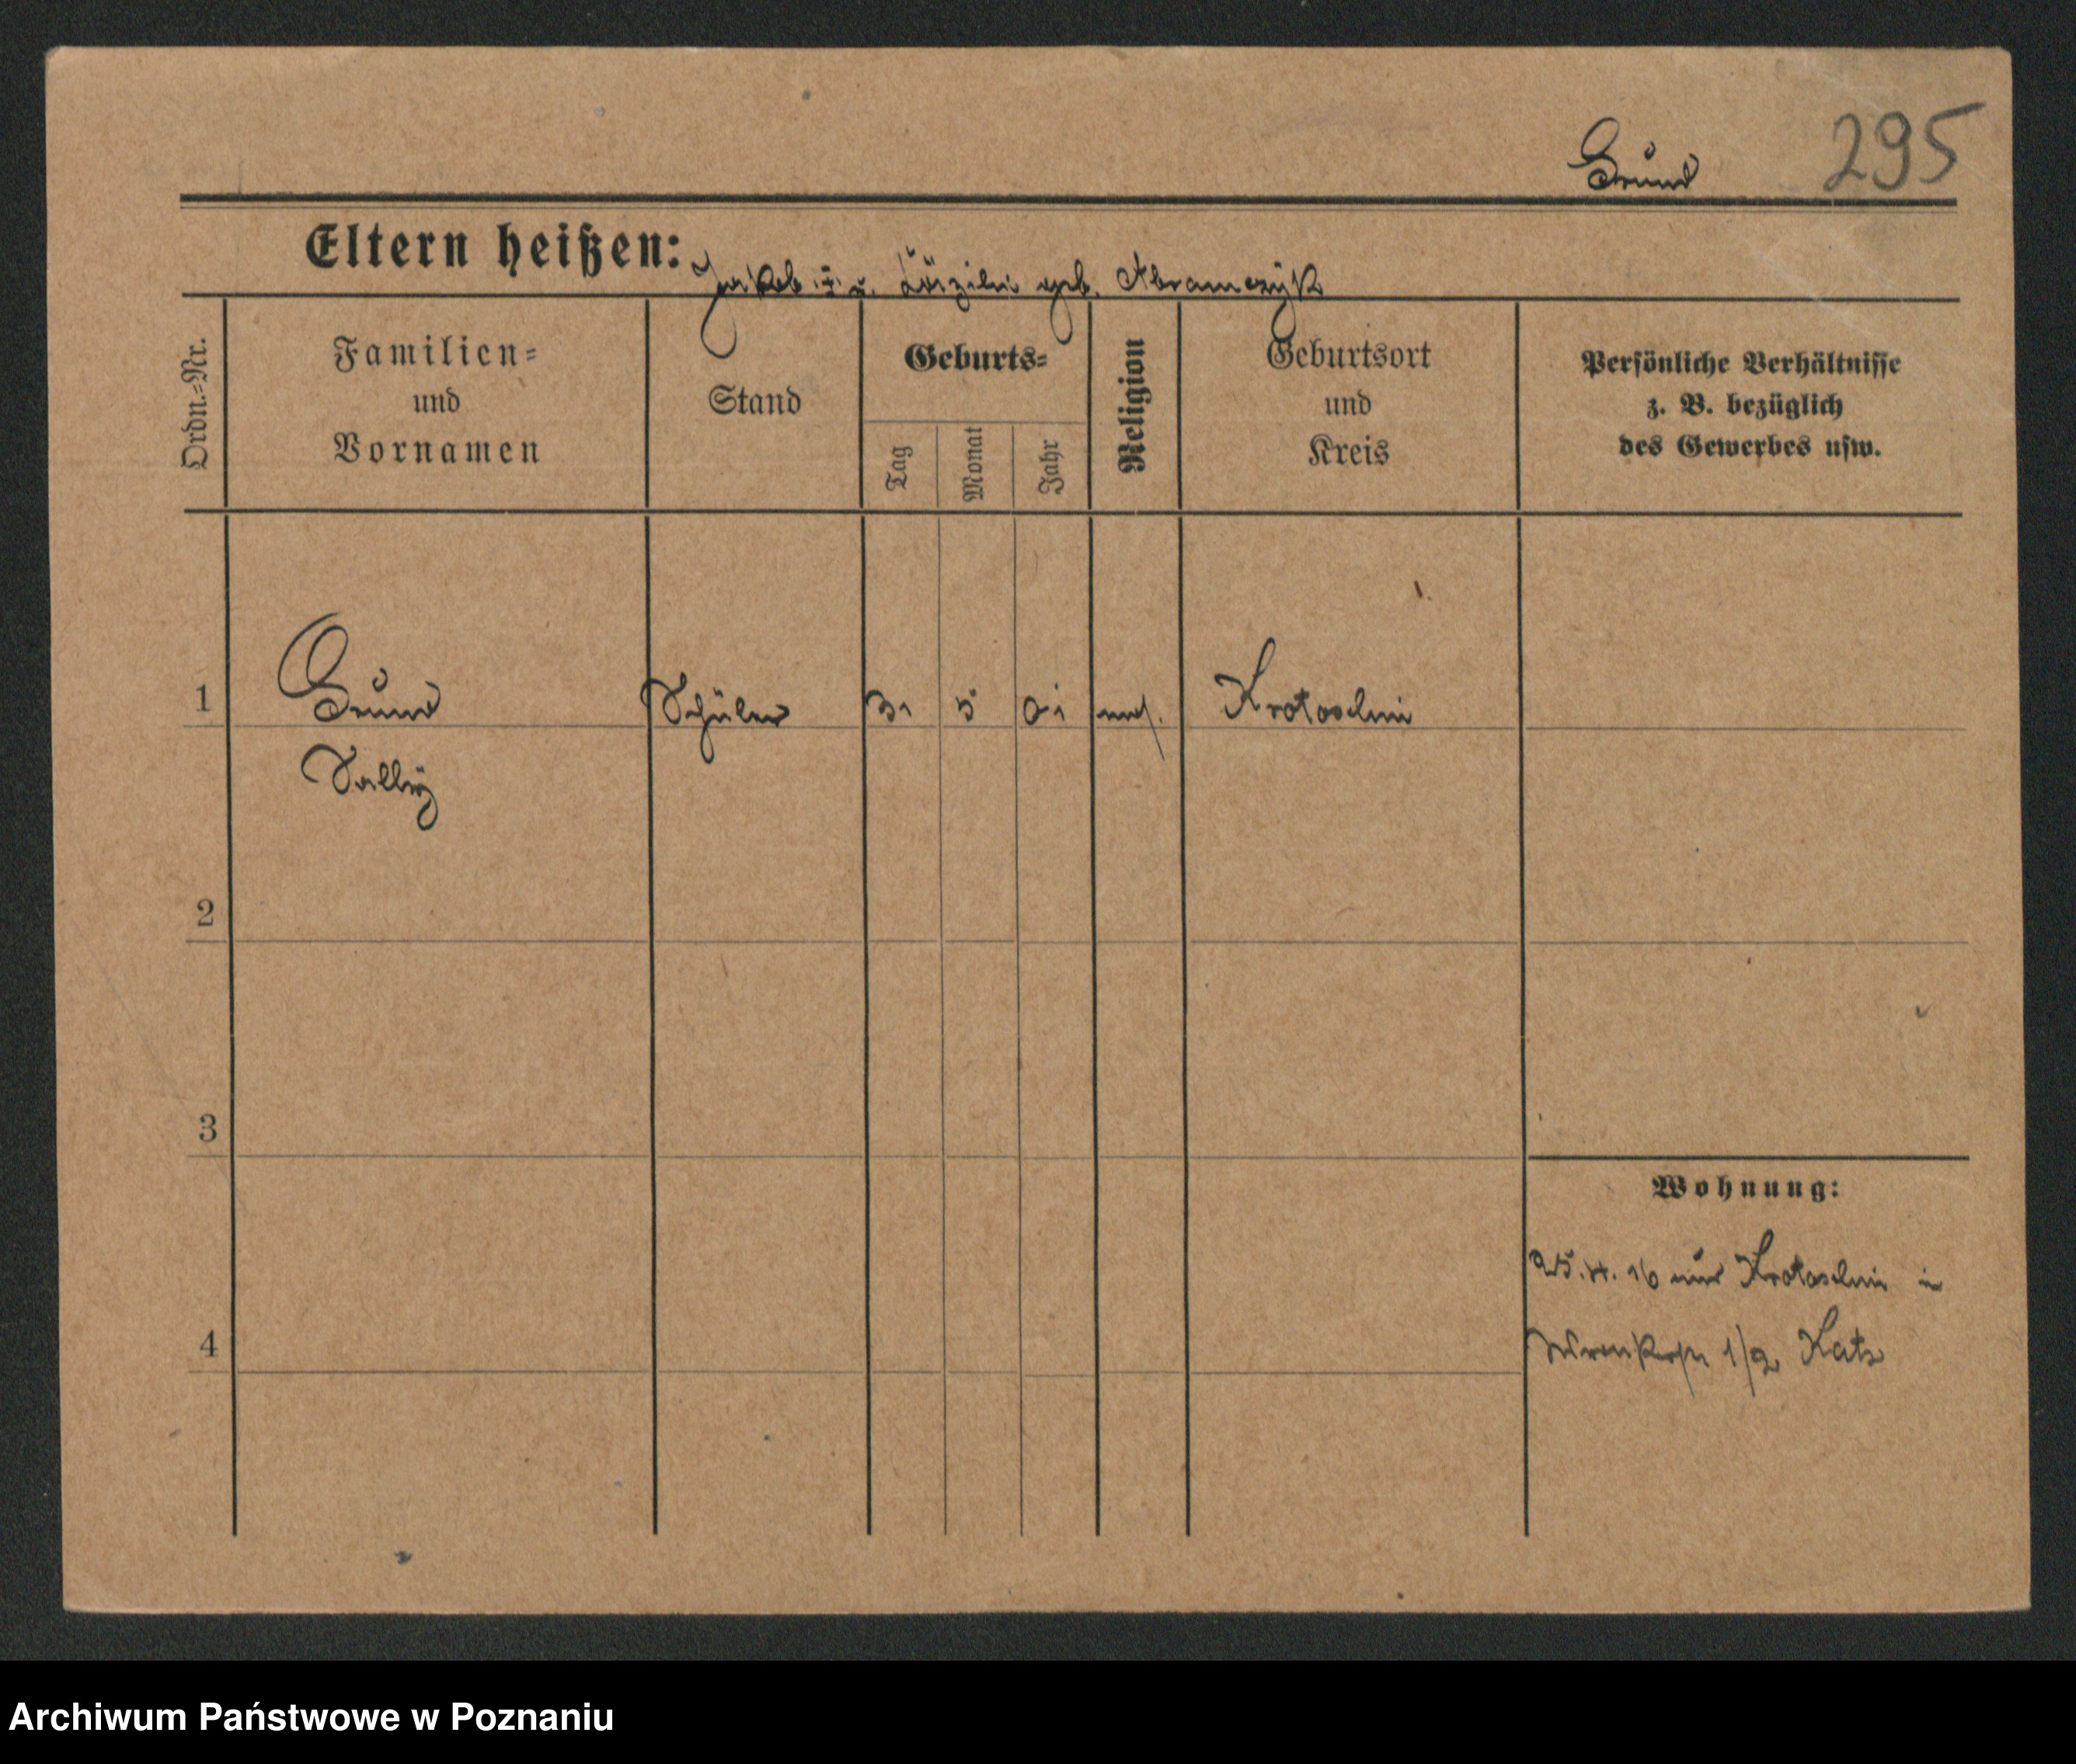 295
Grund
Eltern heißen: Jakob u. Cäzilie geb. Abramczyk
Ordn.-Nr.
Familien-
und
Vornamen
Stand
Geburts-
Tag
Monat
Jahr
Religion
Geburtsort
und
Kreis
Persönliche Verhältnisse
z. B. bezüglich
des Gewerbes usw.
1 Grund Schüler 31 5 01 mos. Krotoschin
Sally
2
3
4
Wohnung:
25.4.16 aus Krotoschin in
1/2 Katz
Archiwum Państwowe w Poznaniu